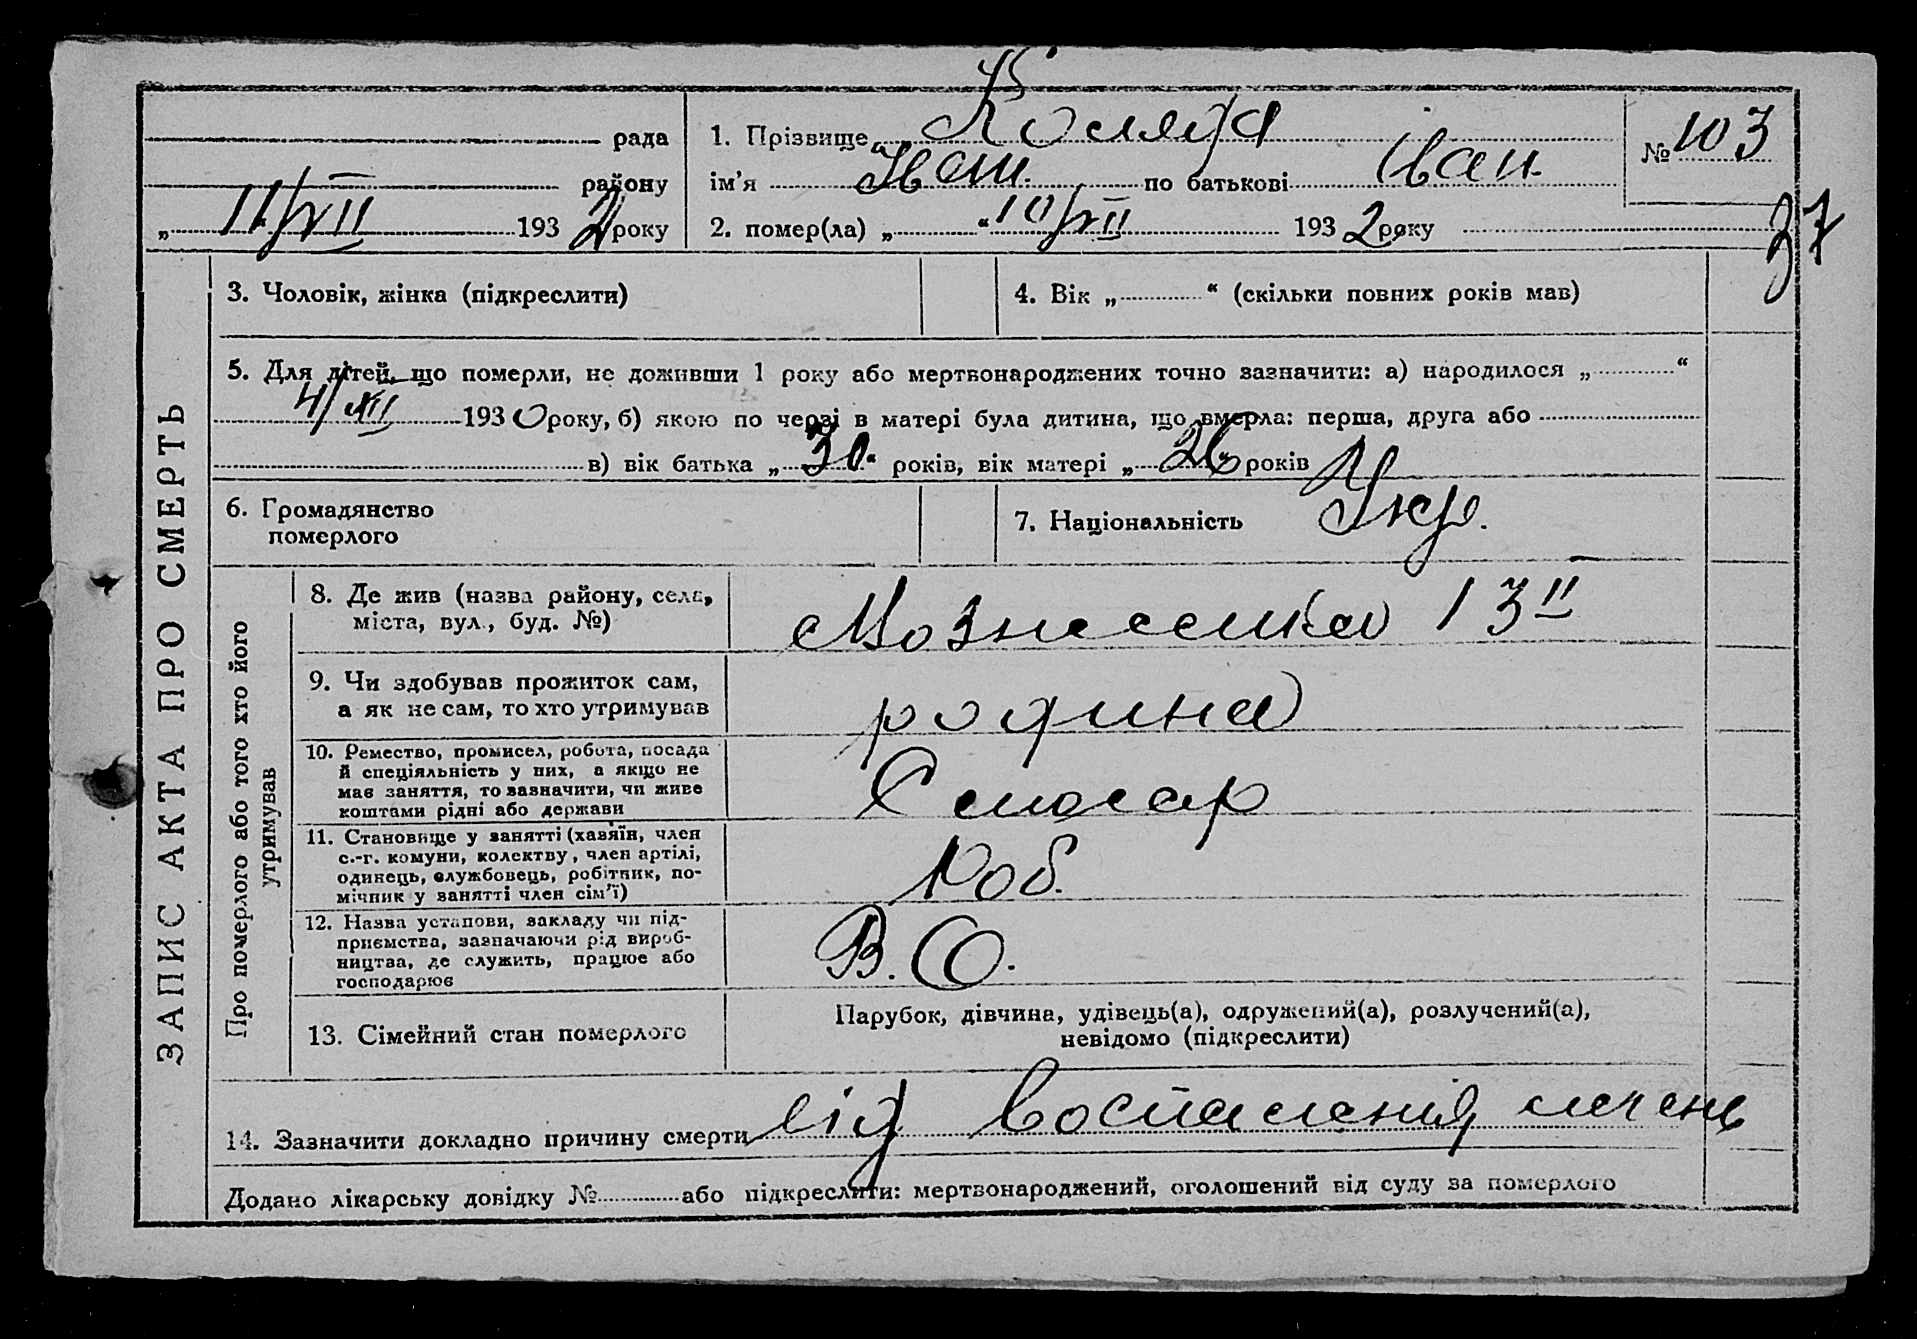 рада
району
„ 11/VII 1932 року
1. Прізвище Коляда
ім'я Іван. по батькові Іван.
2. помер(ла) „ “ 10/VII 1932 року
№ 103
37
ЗАПИС АКТА ПРО СМЕРТЬ
3. Чоловік, жінка (підкреслити)
4. Вік „ “ (скільки повних років мав)
5. Для дітей, що померли, не доживши 1 року або мертвонароджених точно зазначити: а) народилося „ “
4/XII 1930 року, б) якою по черзі в матері була дитина, що вмерла: перша, друга або
в) вік батька „ 30 “ років, вік матері „ 26 “ років
6. Громадянство
померлого
7. Національність Укр.
Про померлого або того хто його
утримував
8. Де жив (назва району, села,
міста, вул., буд. №)
Вознесенка 13
9. Чи здобував прожиток сам,
а як не сам, то хто утримував
родина
10. Ремество, промисел, робота, посада
й спеціяльність у них, а якщо не
має заняття, то зазначити, чи живе
коштами рідні або держави
Слюсар
11. Становище у занятті (хазяїн, член
с.-г. комуни, колектву, член артілі,
одинець, службовець, робітник, по-
мічник у занятті член сім'ї)
Роб.
12. Назва установи, закладу чи під-
приємства, зазначаючи рід вироб-
ництва, де служить, працює або
господарює
В. О.
13. Сімейний стан померлого
Парубок, дівчина, удівець(а), одружений(а), розлучений(а),
невідомо (підкреслити)
14. Зазначити докладно причину смерти від воспаления
Додано лікарську довідку № або підкреслити: мертвонароджений, оголошений від суду за померлого